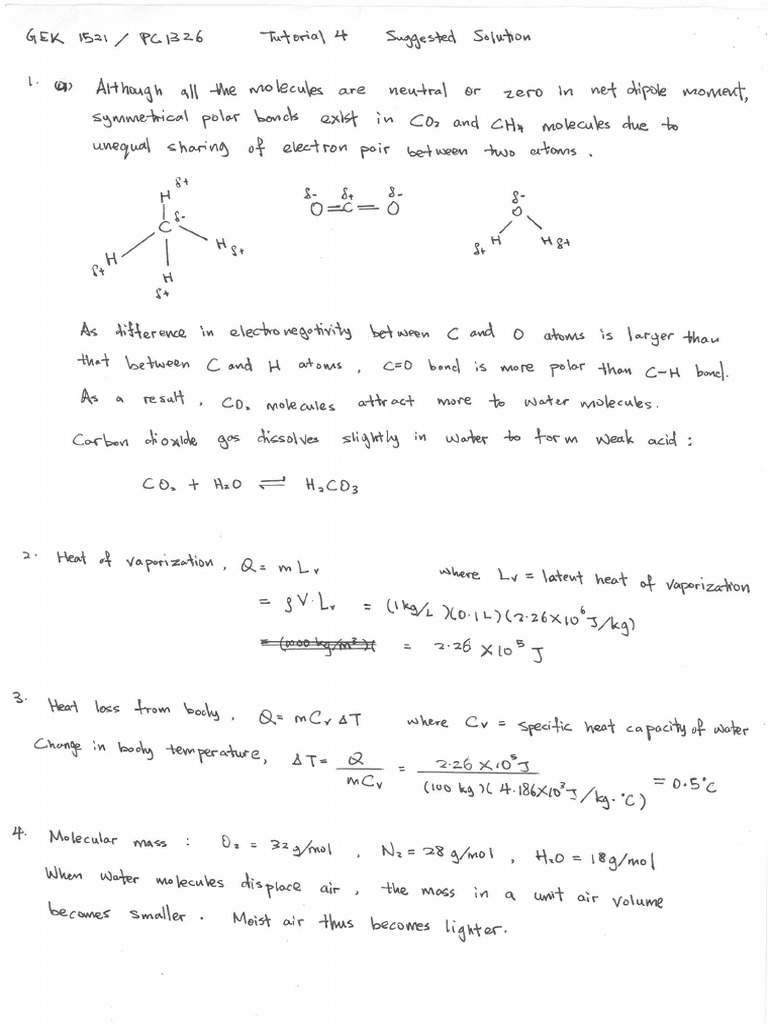 GEK 1521 / PC1326 Tutorial 4 Suggested Solution
1. (a) Although all the molecules are neutral or zero in net dipole moment,
symmetrical polar bonds exist in CO₂ and CH₄ molecules due to
unequal sharing of electron pair between two atoms.
δ+
H
δ-
C
H δ+
H
δ+
H
δ+
δ- δ+ δ-
O=C=O
δ-
O
H
δ+
H δ+
As difference in electronegativity between C and O atoms is larger than
that between C and H atoms, C=O bond is more polar than C-H bond.
As a result, CO₂ molecules attract more to water molecules.
Carbon dioxide gas dissolves slightly in water to form weak acid :
CO₂ + H₂O ⇌ H₂CO₃
2. Heat of vaporization, Q = mLᵥ where Lᵥ = latent heat of vaporization
= ρV·Lᵥ = (1kg/L)(0.1L)(2.26×10⁶ J/kg)
= (1000 kg/m³)( = 2.26 ×10⁵ J
3. Heat loss from body, Q = mCᵥΔT where Cᵥ = specific heat capacity of water
Change in body temperature, ΔT = Q / mCᵥ = 2.26 ×10⁵J / (100 kg)(4.186×10³J/kg·°C) = 0.5°C
4. Molecular mass : O₂ = 32g/mol, N₂ = 28 g/mol, H₂O = 18g/mol
When water molecules displace air, the mass in a unit air volume
becomes smaller. Moist air thus becomes lighter.